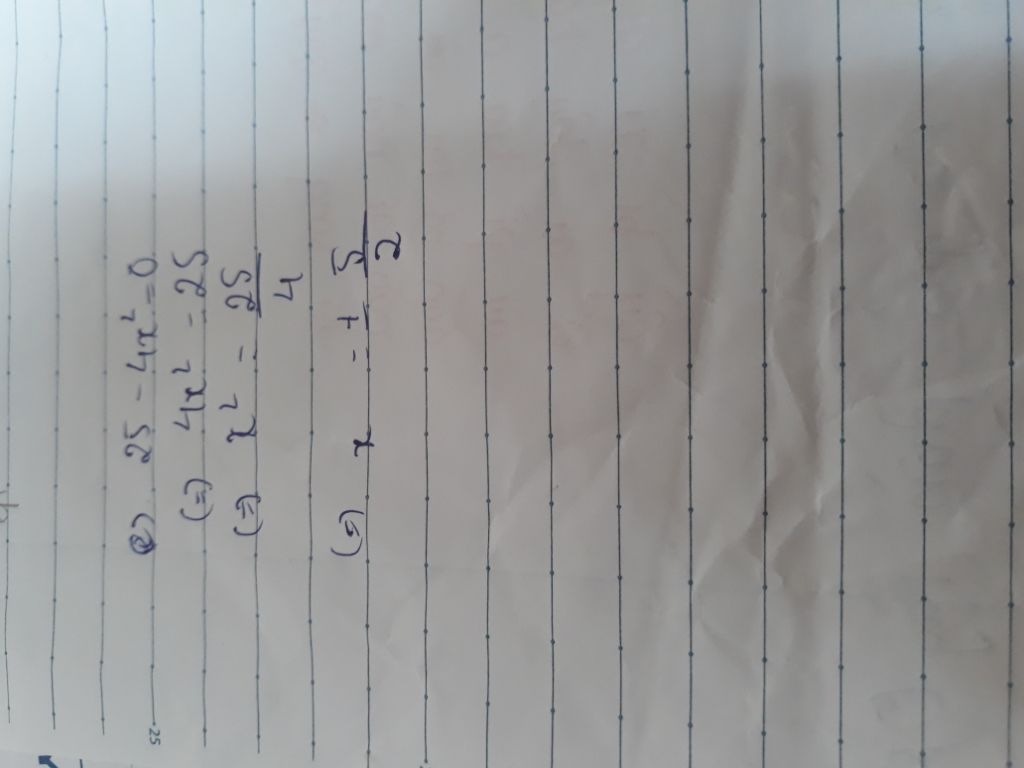 e) 25 - 4x² = 0
(=) 4x² - 25
(=) x² = 25/4
(=) x = ± 5/2
.25